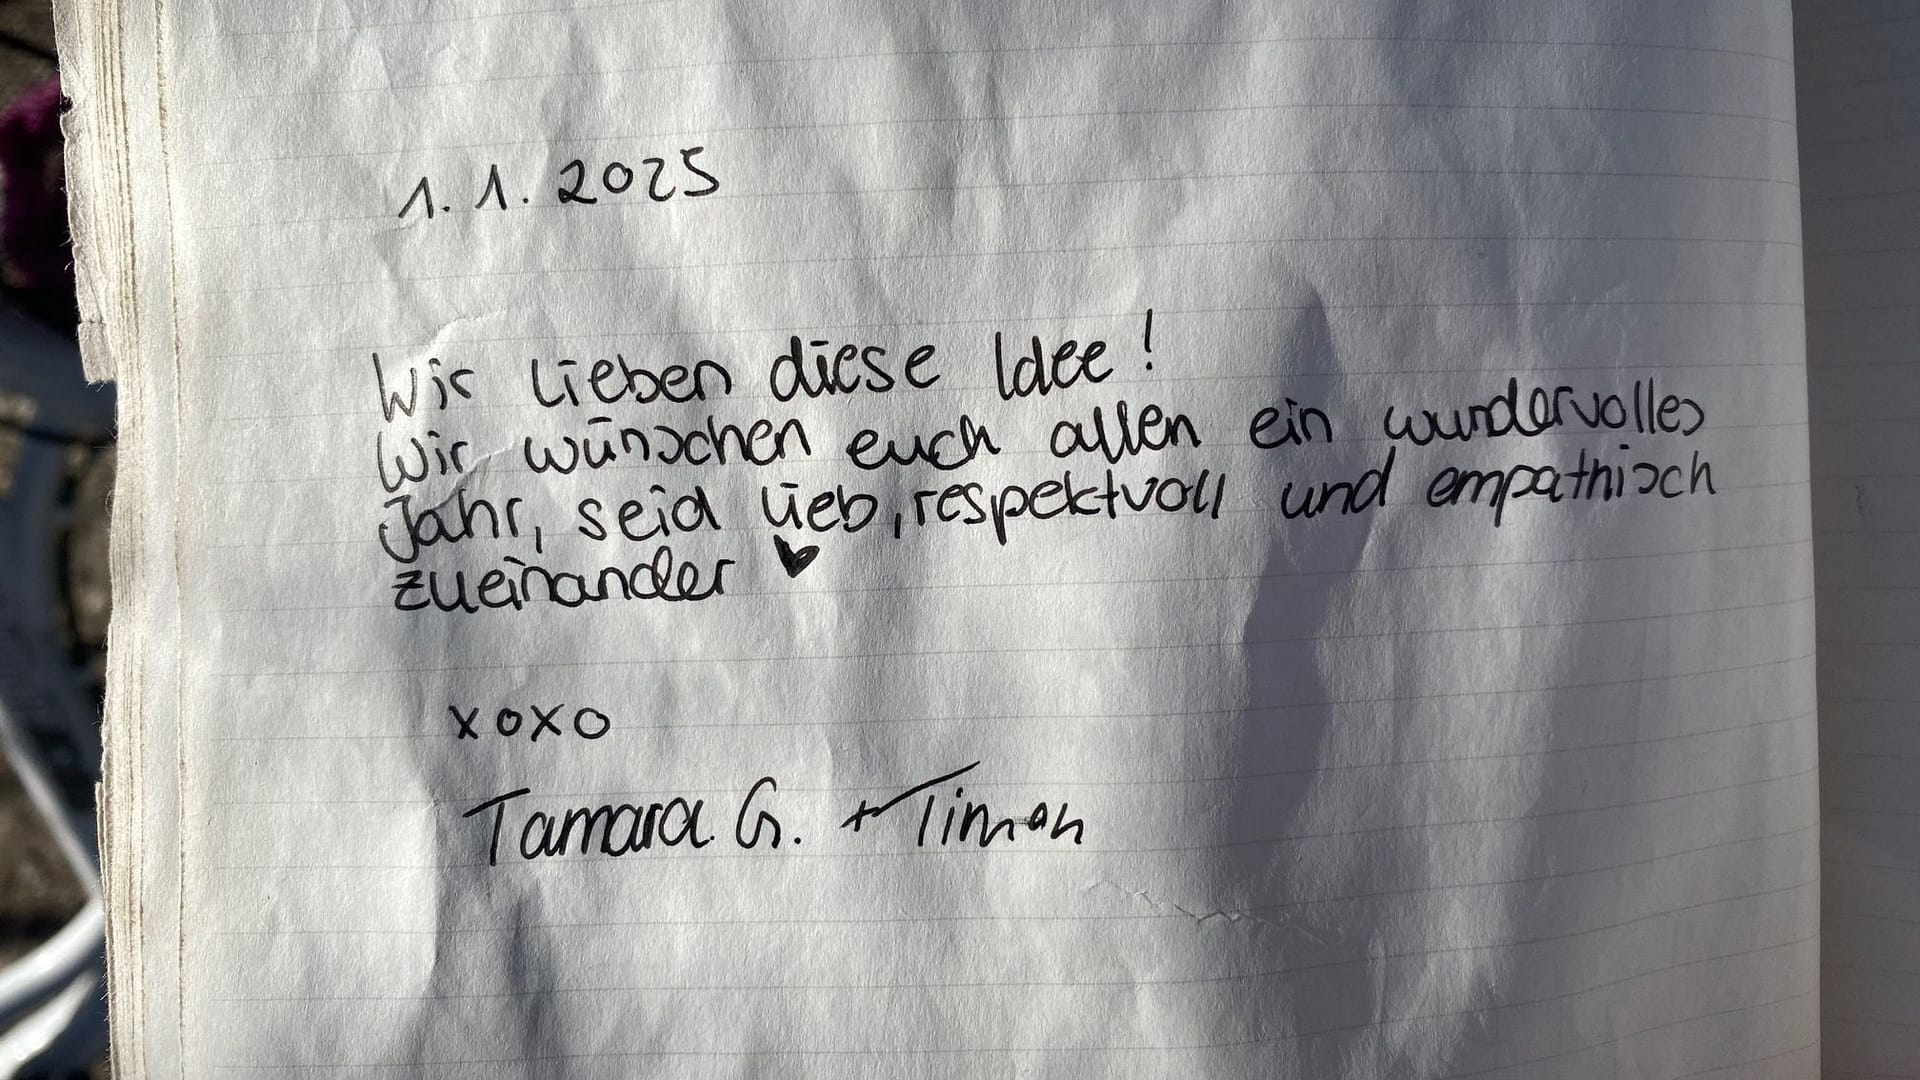 1. 1. 2025
Wir lieben diese Idee!
Wir wünschen euch allen ein wundervolles
Jahr, seid lieb, respektvoll und empathisch
zueinander ♥
xoxo
Tamara G. + Timon